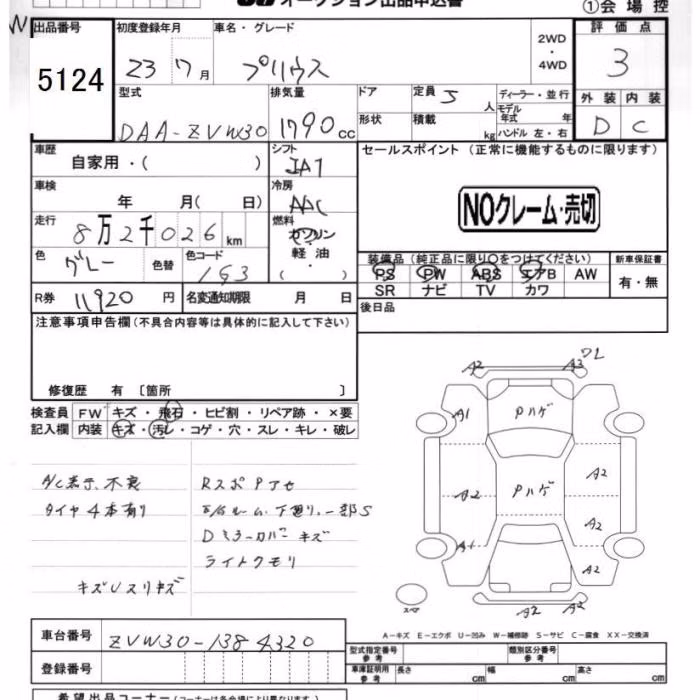 オークション出品申込書
①会場控
出品番号 初度登録年月 車名・グレード 2WD・4WD 評価点
5124 23 7月 プリウス 3
型式 排気量 ドア 定員 5人 ディーラー・並行 外装 内装
DAA-ZVW30 1790cc 形状 積載 kg モデル年式 年 ハンドル 左・右 D C
車歴 シフト セールスポイント (正常に機能するものに限ります)
自家用・( ) IAT
車検 冷房 NOクレーム・売切
年 月( 日) AAC
走行 燃料
8万2千026km ガソリン 軽油・( ・ )
装備品(純正品に限り○をつけてください) 新車保証書
色 グレー 色替 色コード 1G3 PS PW ABS エアB AW 有・無
SR ナビ TV カワ
R券 11920円 名変通知期限 月 日 後日品
注意事項申告欄(不具合内容等は具体的に記入して下さい)
修復歴 有 [箇所 ]
検査員 FW キズ・飛石・ヒビ割・リペア跡・×要
記入欄 内装 キズ・汚レ・コゲ・穴・スレ・キレ・破レ
A2 A3 ワレ
A1 Pハゲ
A/C表示不良 Rスポ Pアセ
A2 Pハゲ A2
タイヤ4本有り 下廻り、一部S
A2
Dミラーカバーキズ
A1
ライトクモリ
A2
キズUスリキズ
スペア A2 A2
A-キズ E-エクボ U-凹み W-補修跡 S-サビ C-腐食 XX-交換済
車台番号 ZVW30-1384320
型式指定番号 参考 類別区分番号 参考
登録番号 車庫証明用 参考 長さ cm 幅 cm 高さ cm
希望出品コーナー(コーナーは各会場により異なります)